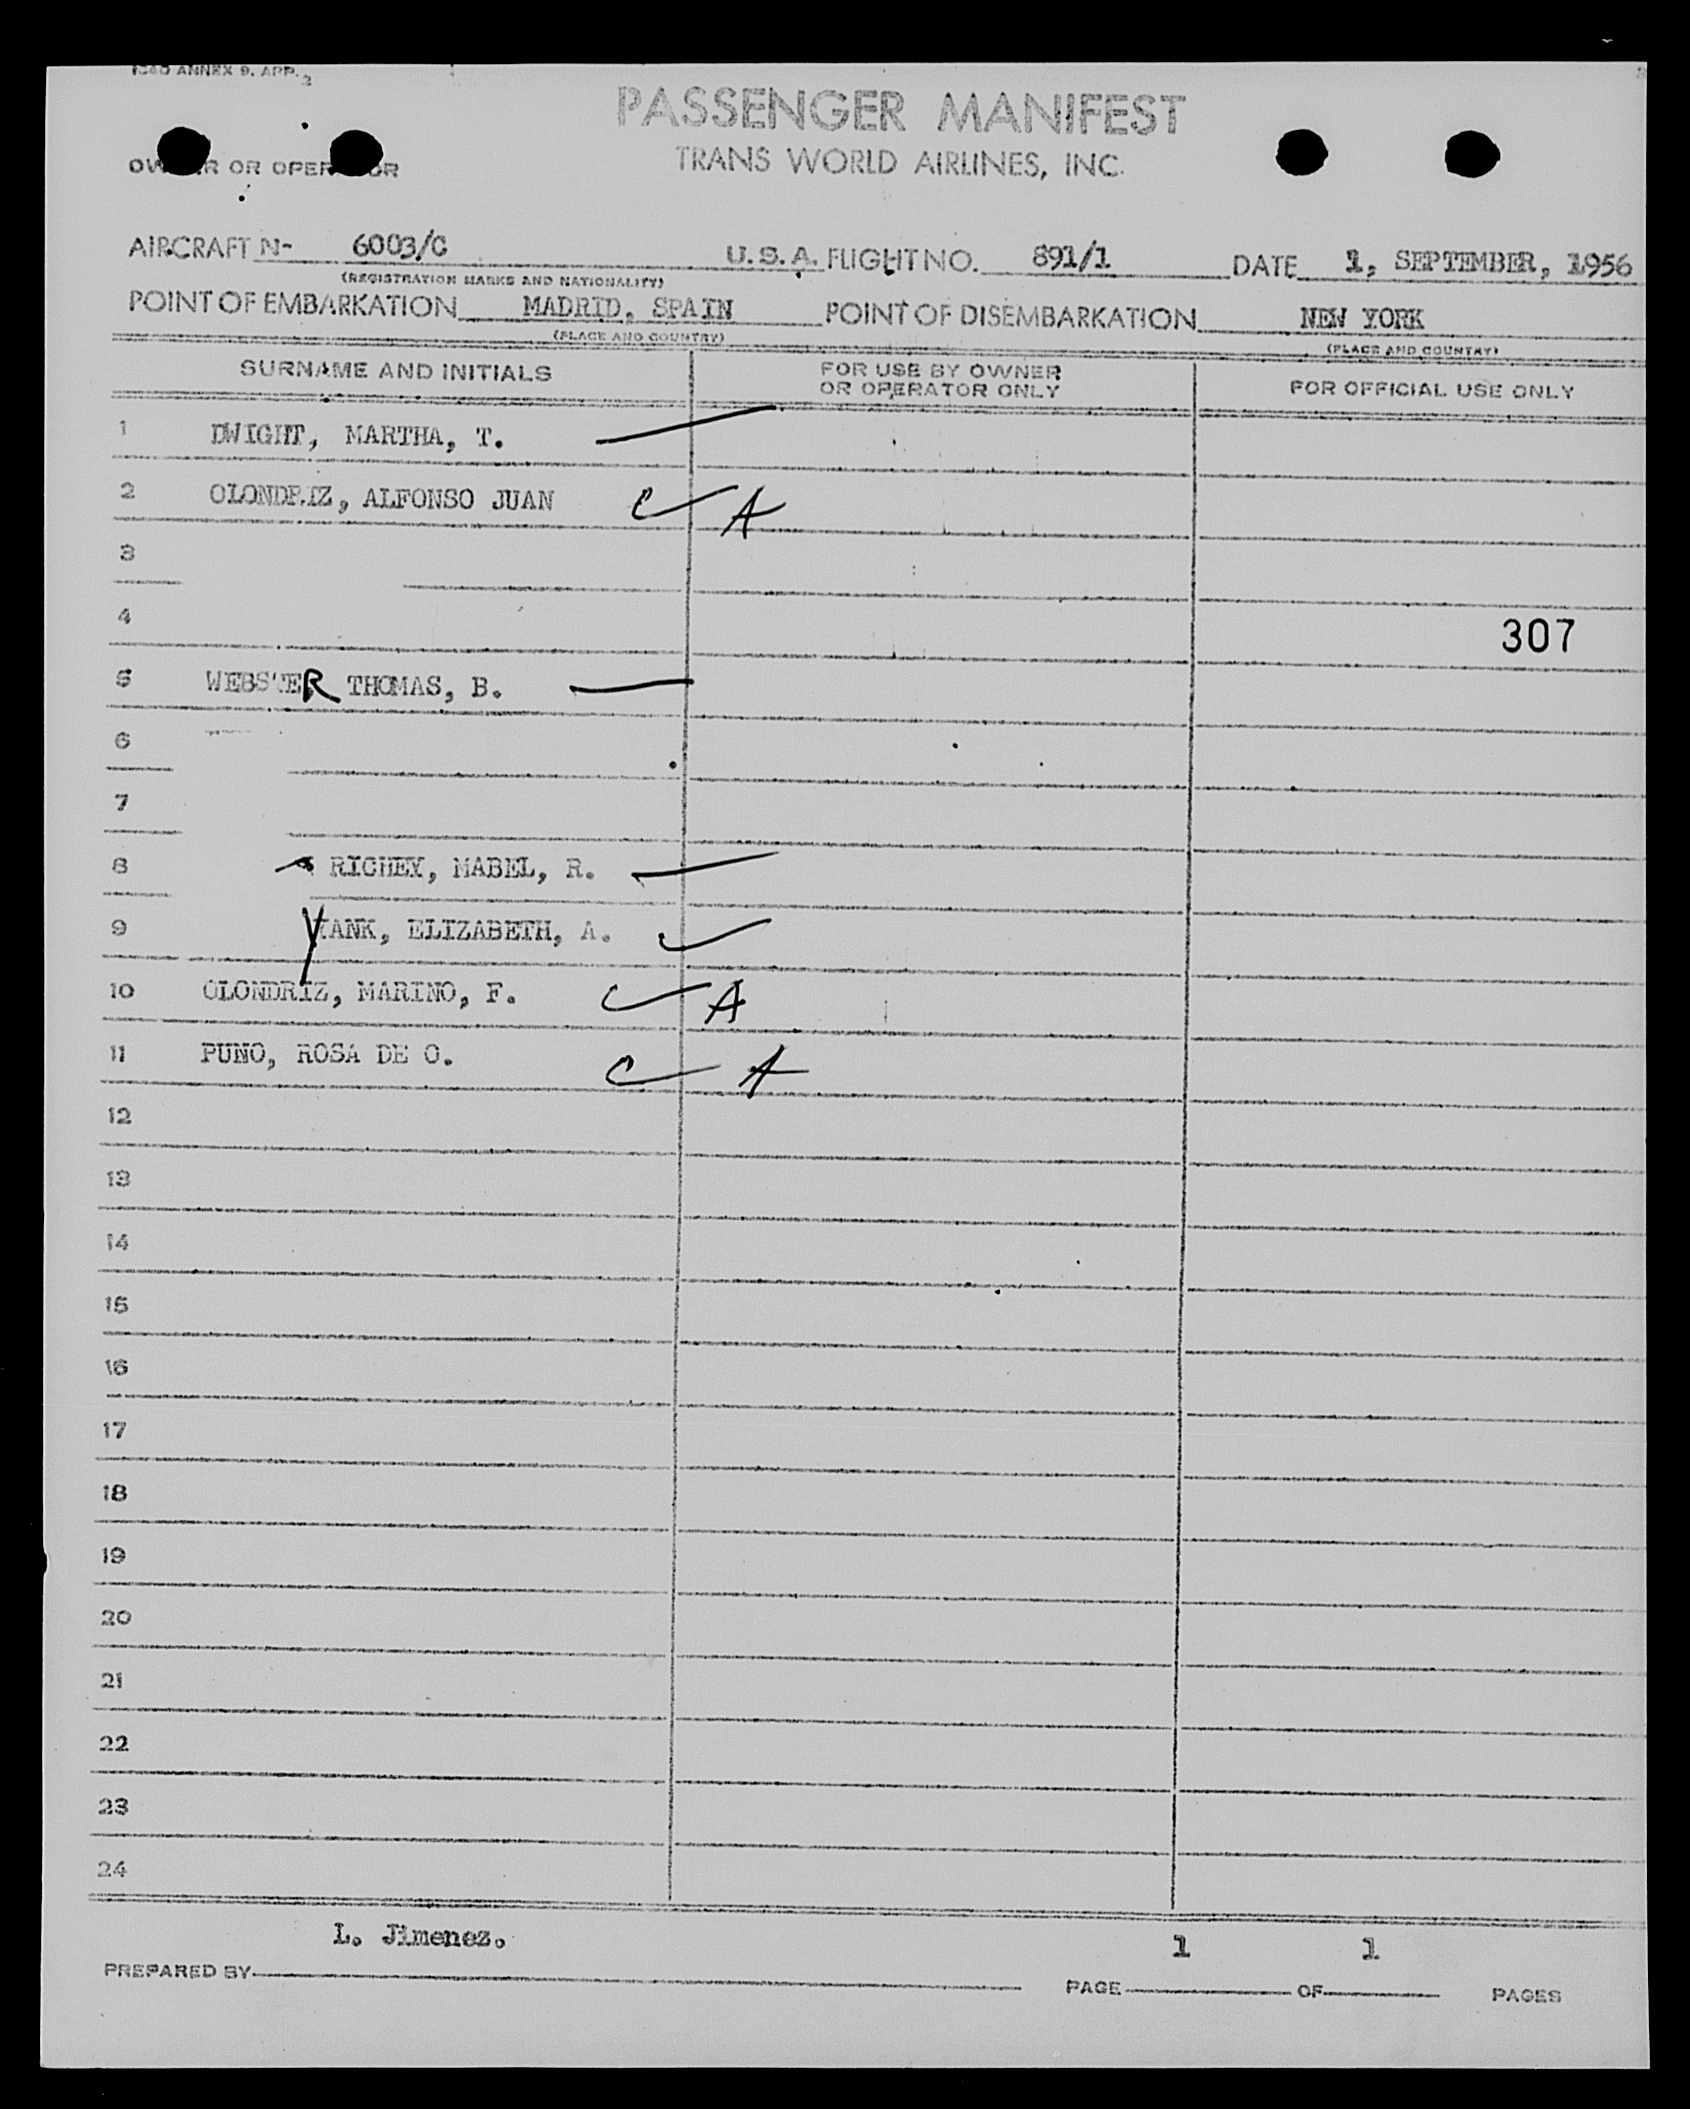 ICAO ANNEX 9. APP. 2
PASSENGER MANIFEST
TRANS WORLD AIRLINES, INC.
OWNER OR OPERATOR
AIRCRAFT N- 6003/C U.S.A. FLIGHT NO. 891/1 DATE 1, SEPTEMBER, 1956
(REGISTRATION MARKS AND NATIONALITY)
POINT OF EMBARKATION MADRID, SPAIN POINT OF DISEMBARKATION NEW YORK
(PLACE AND COUNTRY) (PLACE AND COUNTRY)
SURNAME AND INITIALS FOR USE BY OWNER OR OPERATOR ONLY FOR OFFICIAL USE ONLY
1 DWIGHT, MARTHA, T.
2 OLONDRIZ, ALFONSO JUAN C A
3
4 307
5 WEBSTER THOMAS, B.
6
7
8 RICHEY, MABEL, R.
9 YANK, ELIZABETH, A.
10 OLONDRIZ, MARINO, F. C A
11 PUNO, ROSA DE O. C A
12
13
14
15
16
17
18
19
20
21
22
23
24
L. Jimenez. 1 1
PREPARED BY PAGE OF PAGES